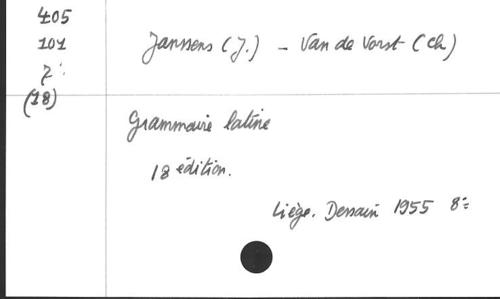 405
101
7:
(18)
Janssens (J.) - Van de Vorst (Ch)
Grammaire latine
18 édition.
Liège. Dessain 1955 8=